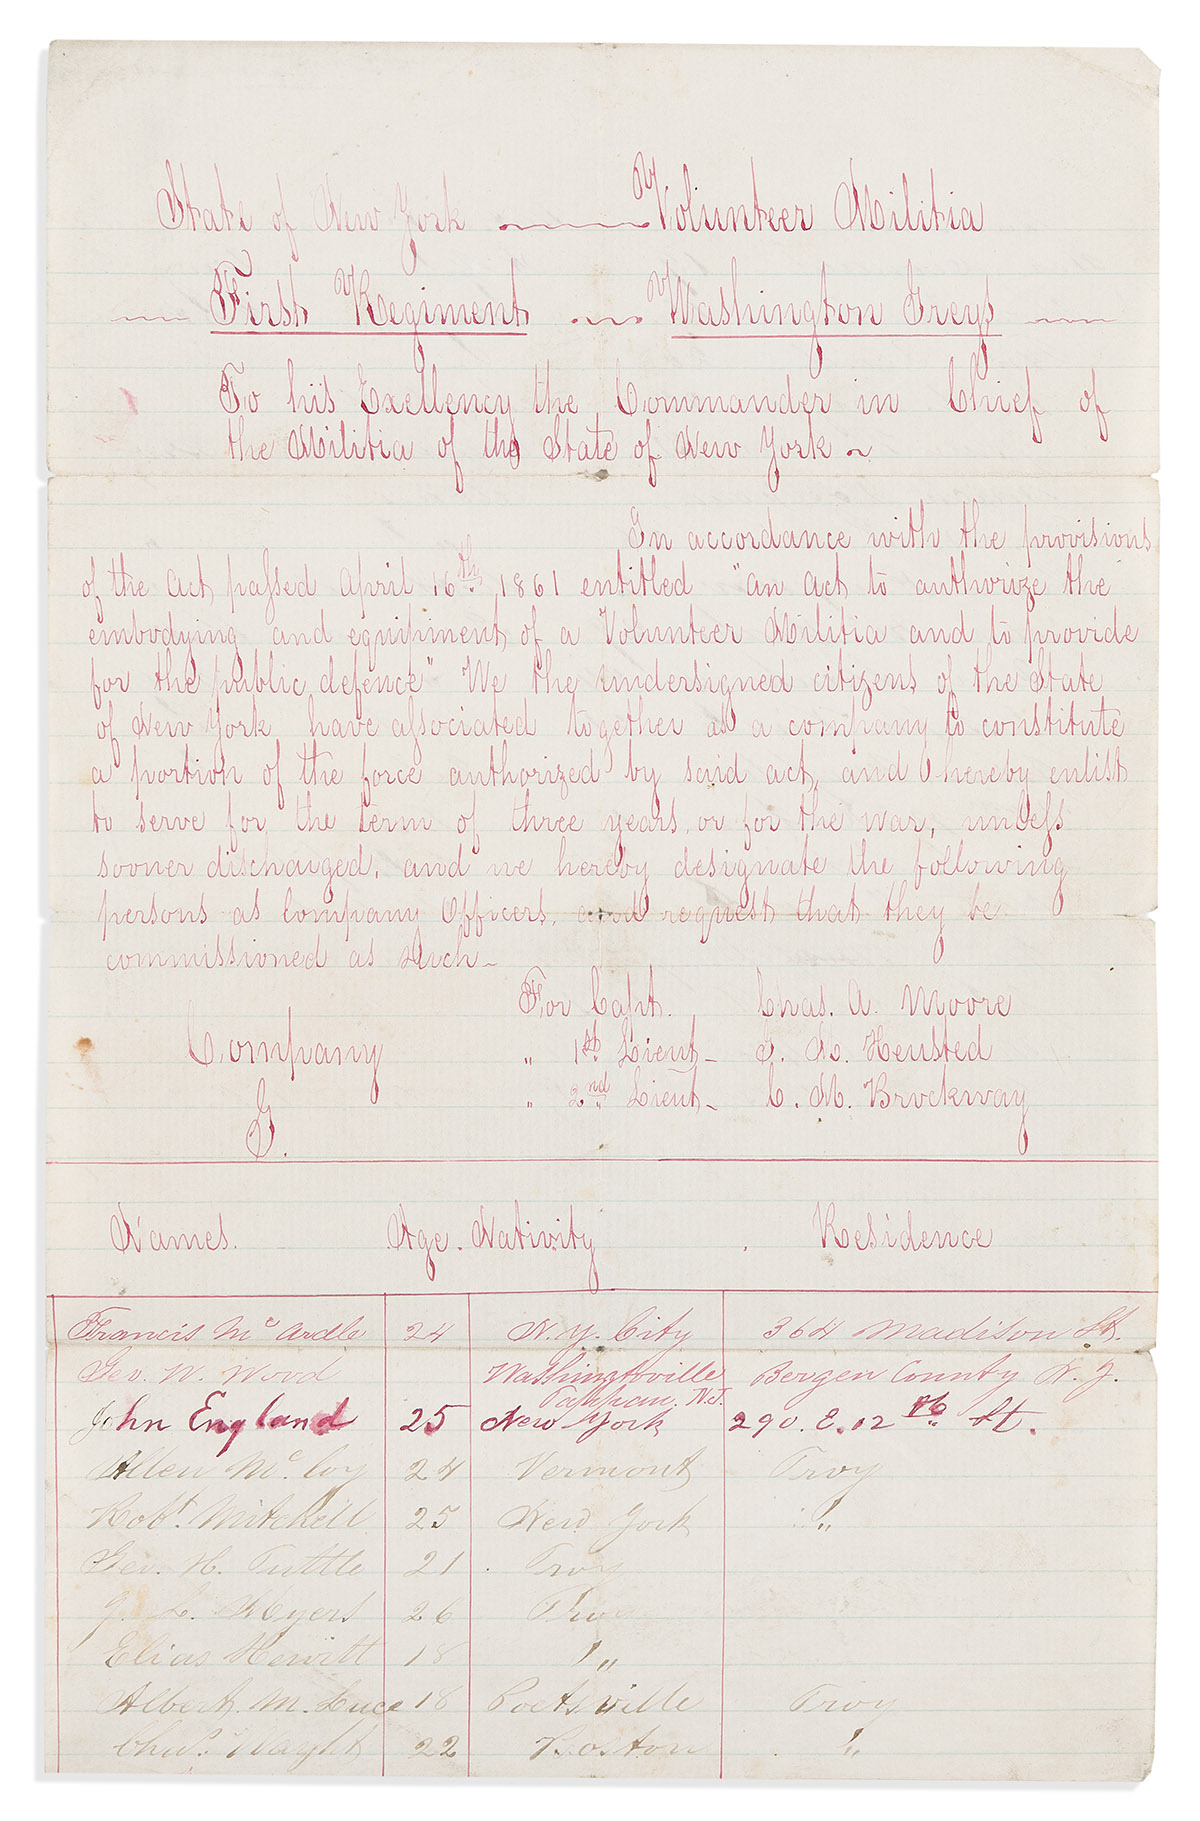 State of New York Volunteer Militia
First Regiment Washington Greys
To his Exellency the Commander in Chief of
the Militia of the State of New York
In accordance with the provisions
of the act passed April 16th 1861 entitled "an act to authorize the
embodying and equipment of a Volunteer Militia and to provide
for the public defence" We the undersigned citizens of the State
of New York have associated together as a company to constitute
a portion of the force authorized by said act, and hereby enlist
to serve for the term of three years, or for the war, unless
sooner discharged, and we hereby designate the following
persons as Company Officers, and request that they be
commissioned as such
For Capt. Chas. A. Moore
Company " 1st Lieut. Heusted
G. " 2nd Lieut. C. M. Brockway
Names. Age. Nativity Residence
Francis McArdle 24 N.Y. City 364 Madison St.
Geo. W. Wood Washingtonville Bergen County N.J.
Tappan, N.J.
John England 25 New York 290. E. 12th St.
Allen McCoy 24 Vermont Troy
Robt. Mitchell 25 New York "
Geo. H. Tuttle 21 Troy
Myers 26 Troy
Elias Hewitt 18 "
Albert M. Luce 18 Troy
22 Boston "